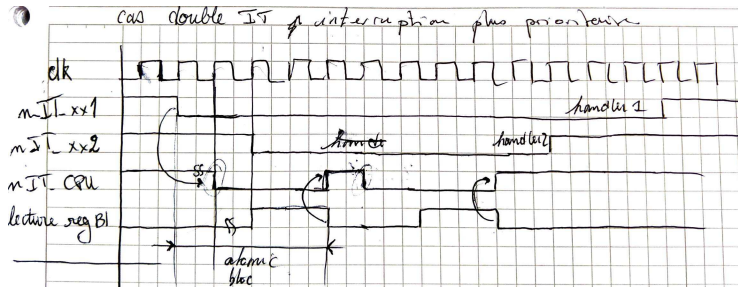 cas double IT interruption plus prioritaire
clk
nIT_xx1 handler 1
nIT_xx2 handler2
nIT_CPU
lecture reg BI
atomic
bloc